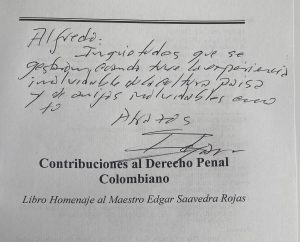 Alfredo:
Inquietudes que se
gestaron cuando tuve la experiencia
inolvidable de la cultura paisa
y de amigos inolvidables como
tú
Abrazos
Contribuciones al Derecho Penal
Colombiano
Libro Homenaje al Maestro Edgar Saavedra Rojas